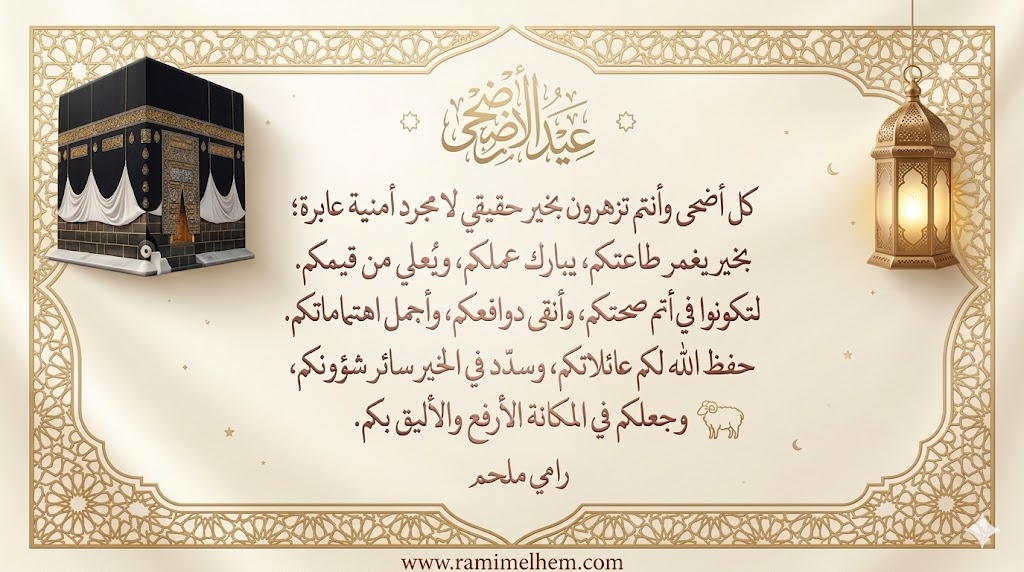 عِيدُ الأَضْحَى
كل أضحى وأنتم تزهرون بخير حقيقي لا مجرد أمنية عابرة؛
بخير يغمر طاعتكم، يبارك عملكم، ويُعلي من قيمكم.
لتكونوا في أتم صحتكم، وأنقى دوافعكم، وأجمل اهتماماتكم.
حفظ الله لكم عائلاتكم، وسدّد في الخير سائر شؤونكم،
وجعلكم في المكانة الأرفع والأليق بكم.
رامي ملحم
www.ramimelhem.com